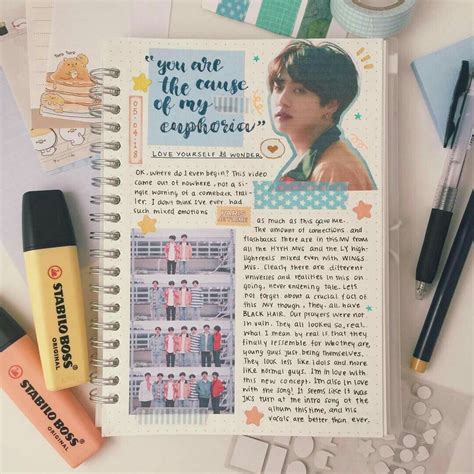 "you are
the cause
of my
euphoria"
05.04.18
LOVE YOURSELF 起 WONDER
OK, where do I even begin? This video
came out of nowhere, not a sin-
gle warning of a comeback trai-
ler. I don't think I've ever had
such mixed emotions
as much as this gave me.
The amount of connections, and
flashbacks there are in this MV from
all the HYYH MVs and the LY high-
light reels mixed even with WINGS
MVs. Clearly there are different
universes and realities in this on
going, never ending tale. Lets
not forget about a crucial fact of
this MV though, they. all have
BLACK HAIR. Our prayers were not
in vain. They all looked so, real.
What I mean by real is that they
finally resemble for who they are,
young guys just being themselves.
They look less like idols and more
like normal guys. I'm in love with
this new concept. I'm also in love
with the song! It seems like it was
JK's turn at the intro song of the
album this time, and his
vocals are better than ever.
STABILO BOSS
ORIGINAL
STABILO BOSS
ORIGINAL